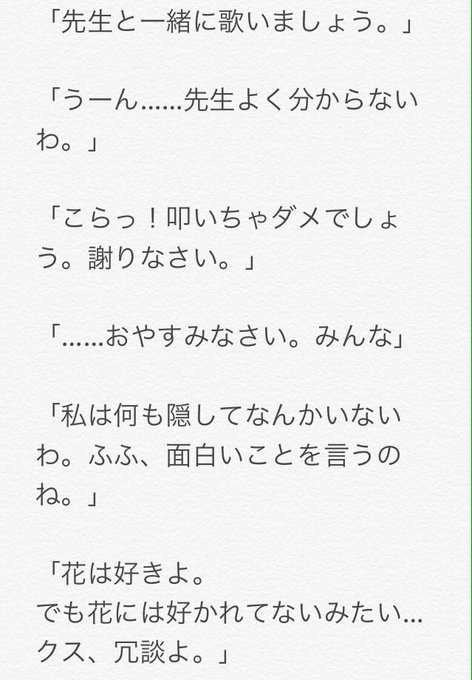 「先生と一緒に歌いましょう。」
「うーん……先生よく分からない
わ。」
「こらっ！叩いちゃダメでしょ
う。謝りなさい。」
「……おやすみなさい。みんな」
「私は何も隠してなんかいない
わ。ふふ、面白いことを言うの
ね。」
「花は好きよ。
でも花には好かれてないみたい…
クス、冗談よ。」